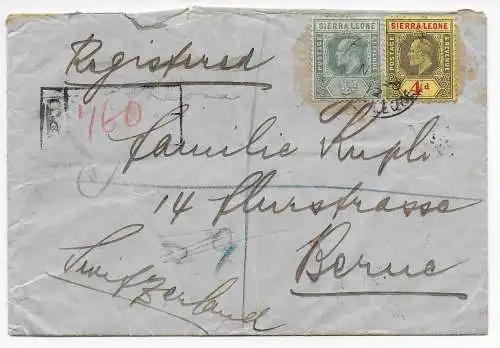 Registered
SIERRA LEONE
SIERRA LEONE
POSTAGE
REVENUE
POSTAGE
REVENUE
½d
4d
R
760
Familie Kupli
14 Flurstrasse
Berne
Switzerland